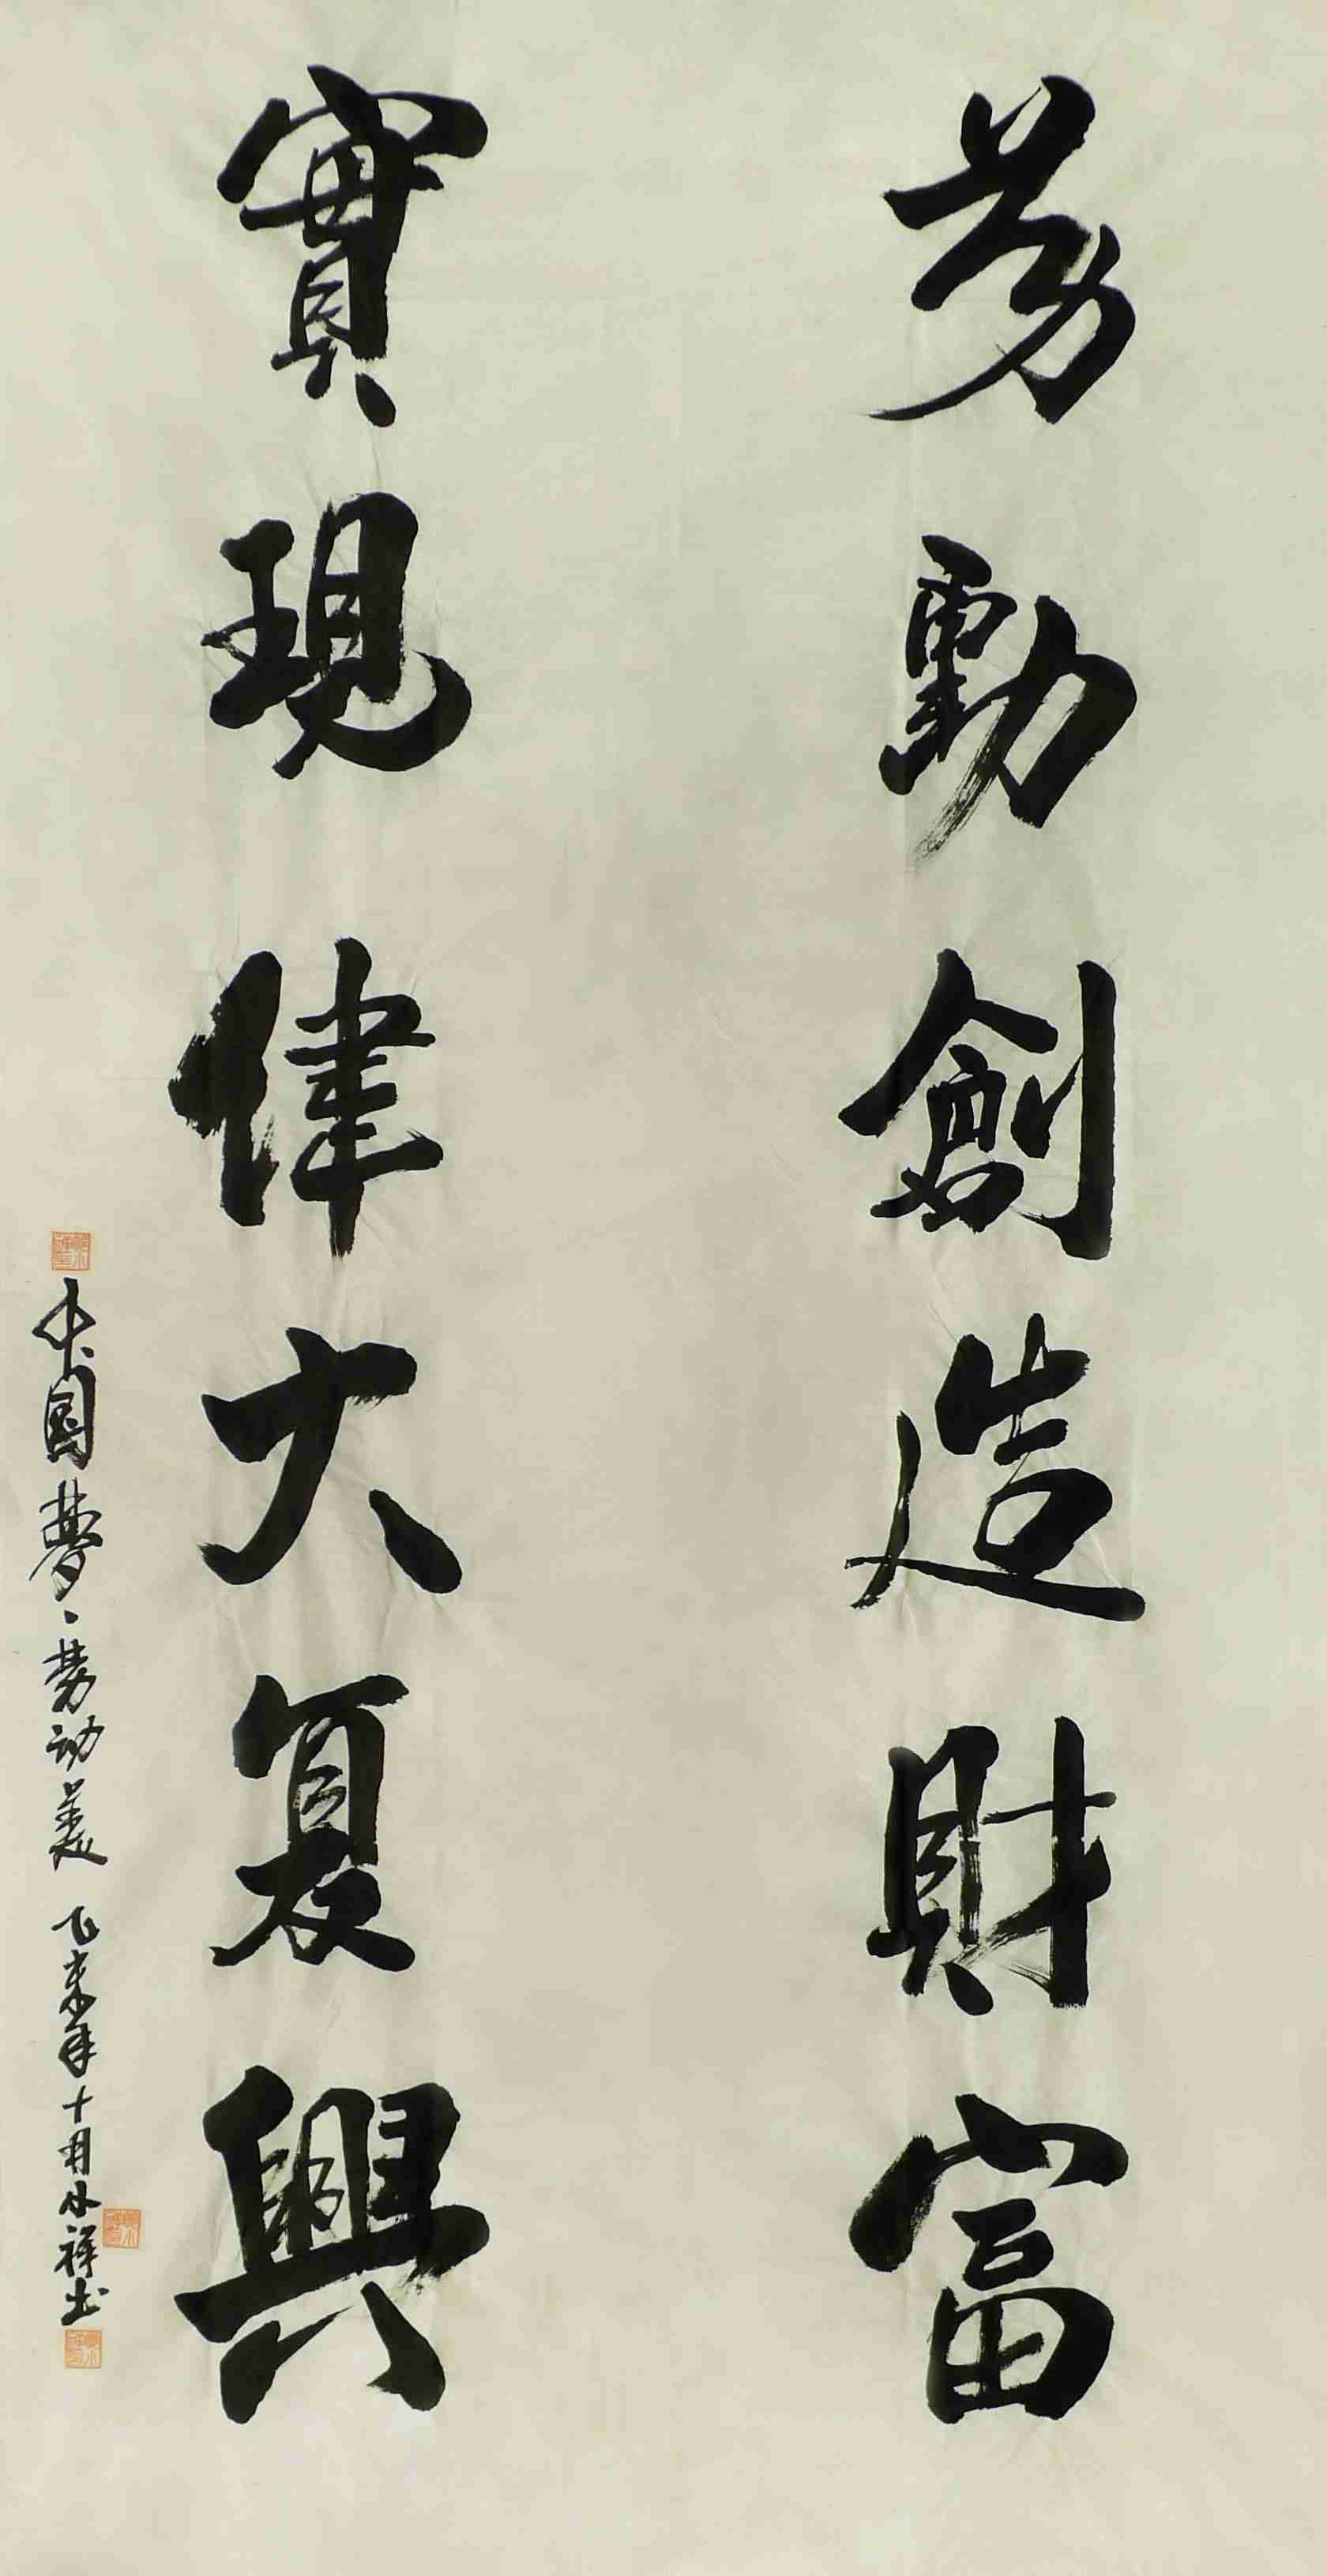 劳動創造財富
實現偉大复興
中國夢、劳动美 乙未年十月小祥书